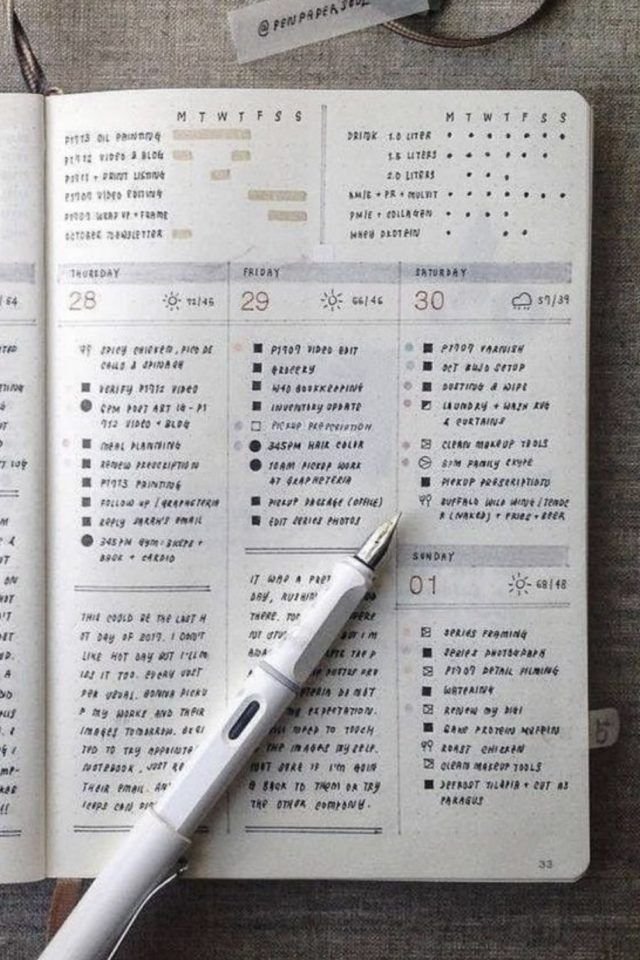 @PENPAPERSOUL
M T W T F S S
P1713 OIL PAINTING
P1712 VIDEO & BLOG
P1711 + PRINT LISTING
P1709 VIDEO EDITING
P1709 WRAP UP + FRAME
OCTOBER NEWSLETTER
M T W T F S S
DRINK 1.0 LITER
1.5 LITERS
2.0 LITERS
AM/E + PR + MULVIT
PM/E + COLLAGEN
WHEY PROTEIN
/64
THURSDAY
28
72/45
SPICY CHICKEN, PICO DE
GALLO & SPINACH
VERIFY P1712 VIDEO
6PM POST ART IG - P1
712 VIDEO + BLOG
MEAL PLANNING
RENEW PRESCRIPTION
P1713 PAINTING
FOLLOW UP / GRAPHETERIA
REPLY SARAH'S EMAIL
345PM GYM: BICEPS +
BACK + CARDIO
THIS COULD BE THE LAST H
OT DAY OF 2017. I DON'T
LIKE HOT DAY BUT I'LL M
ISS IT TOO. EVERY JUST
PER USUAL. GONNA PICKU
P MY WORKS AND THEIR
IMAGES TOMORROW. EXCI
TED TO TRY APPOINTE
NOTEBOOK, JUST RE
THEIR EMAIL. AN
ICEPS CAN
FRIDAY
29
66/46
P1709 VIDEO EDIT
GROCERY
W40 BOOKKEEPING
INVENTORY UPDATE
PICKUP PRESCRIPTION
345PM HAIR COLOR
10AM PICKUP WORK
AT GRAPHETERIA
PICKUP PACKAGE (OFFICE)
EDIT SERIES PHOTOS
IT WAS A
DAY,
THERE.
EXPECTATION.
NEED TO TOUCH
THE IMAGES MYSELF.
NOT SURE IF I'M GOIN
G BACK TO THEM OR TRY
THE OTHER COMPANY.
SATURDAY
30
57/39
P1709 VARNISH
OCT BUJO SETUP
DUSTING & WIPE
LAUNDRY + WASH RUG
& CURTAINS
CLEAN MAKEUP TOOLS
8PM FAMILY SKYPE
PICKUP PRESCRIPTION
BUFFALO WILD WING / TENDE
R (NAKED) + FRIES + BEER
SUNDAY
01
68/48
SERIES FRAMING
SERIES PHOTOGRAPH
P1709 DETAIL FILMING
WATERING
RENEW MY DIGI
BAKE PROTEIN MUFFINS
ROAST CHICKEN
CLEAN MAKEUP TOOLS
DEFROST TILAPIA + CUT AS
PARAGUS
33